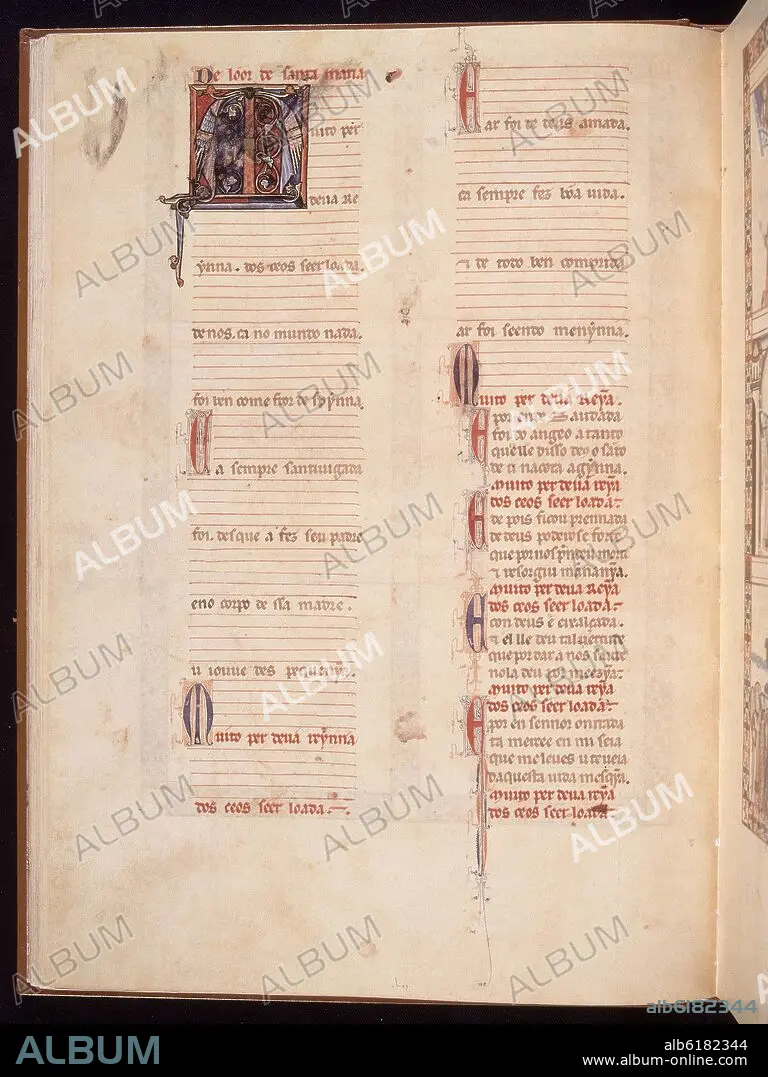 De loor de santa maria
Muito per
deua Re
ynna. dos ceos seer loada.
de nos. ca no mundo nada.
foi ben come flor de spynna.
Ca sempre santiuigada
foi. des que a fez seu padre
eno corpo de ssa madre.
u iouue des pequenỹa.
Muito per deua reynna
dos ceos seer loada.
E ar foi de deus amada.
ca sempre fez bõa uida.
⁊ de todo ben comprida
ar foi seendo menynna.
Muito per deua Reỹa.
E por end Saudada
foi do angeo a tanto
que lle disso dey o sãto
de ti nacera agỹnna.
Muito per deua reỹa
dos ceos seer loada.
E depois ficou prennada
de deus poderos e forte
que por nos
⁊ resorgiu
Muito per deua Reỹa
dos ceos seer loada.
E con deus e eixalçada.
⁊ el lle deu tal uertude
que por dar a nos saude
nola deu por meezỹa.
Muito per deua reỹa
dos ceos seer loada.
E por en sennor onrrada
ta mercee en mi seia
que me leues u te ueia
daquesta uida mesqỹa.
Muito per deua reỹa
dos ceos seer loada.
ALBUM
alb6182344
ALBUM
alb6182344
www.album-online.com